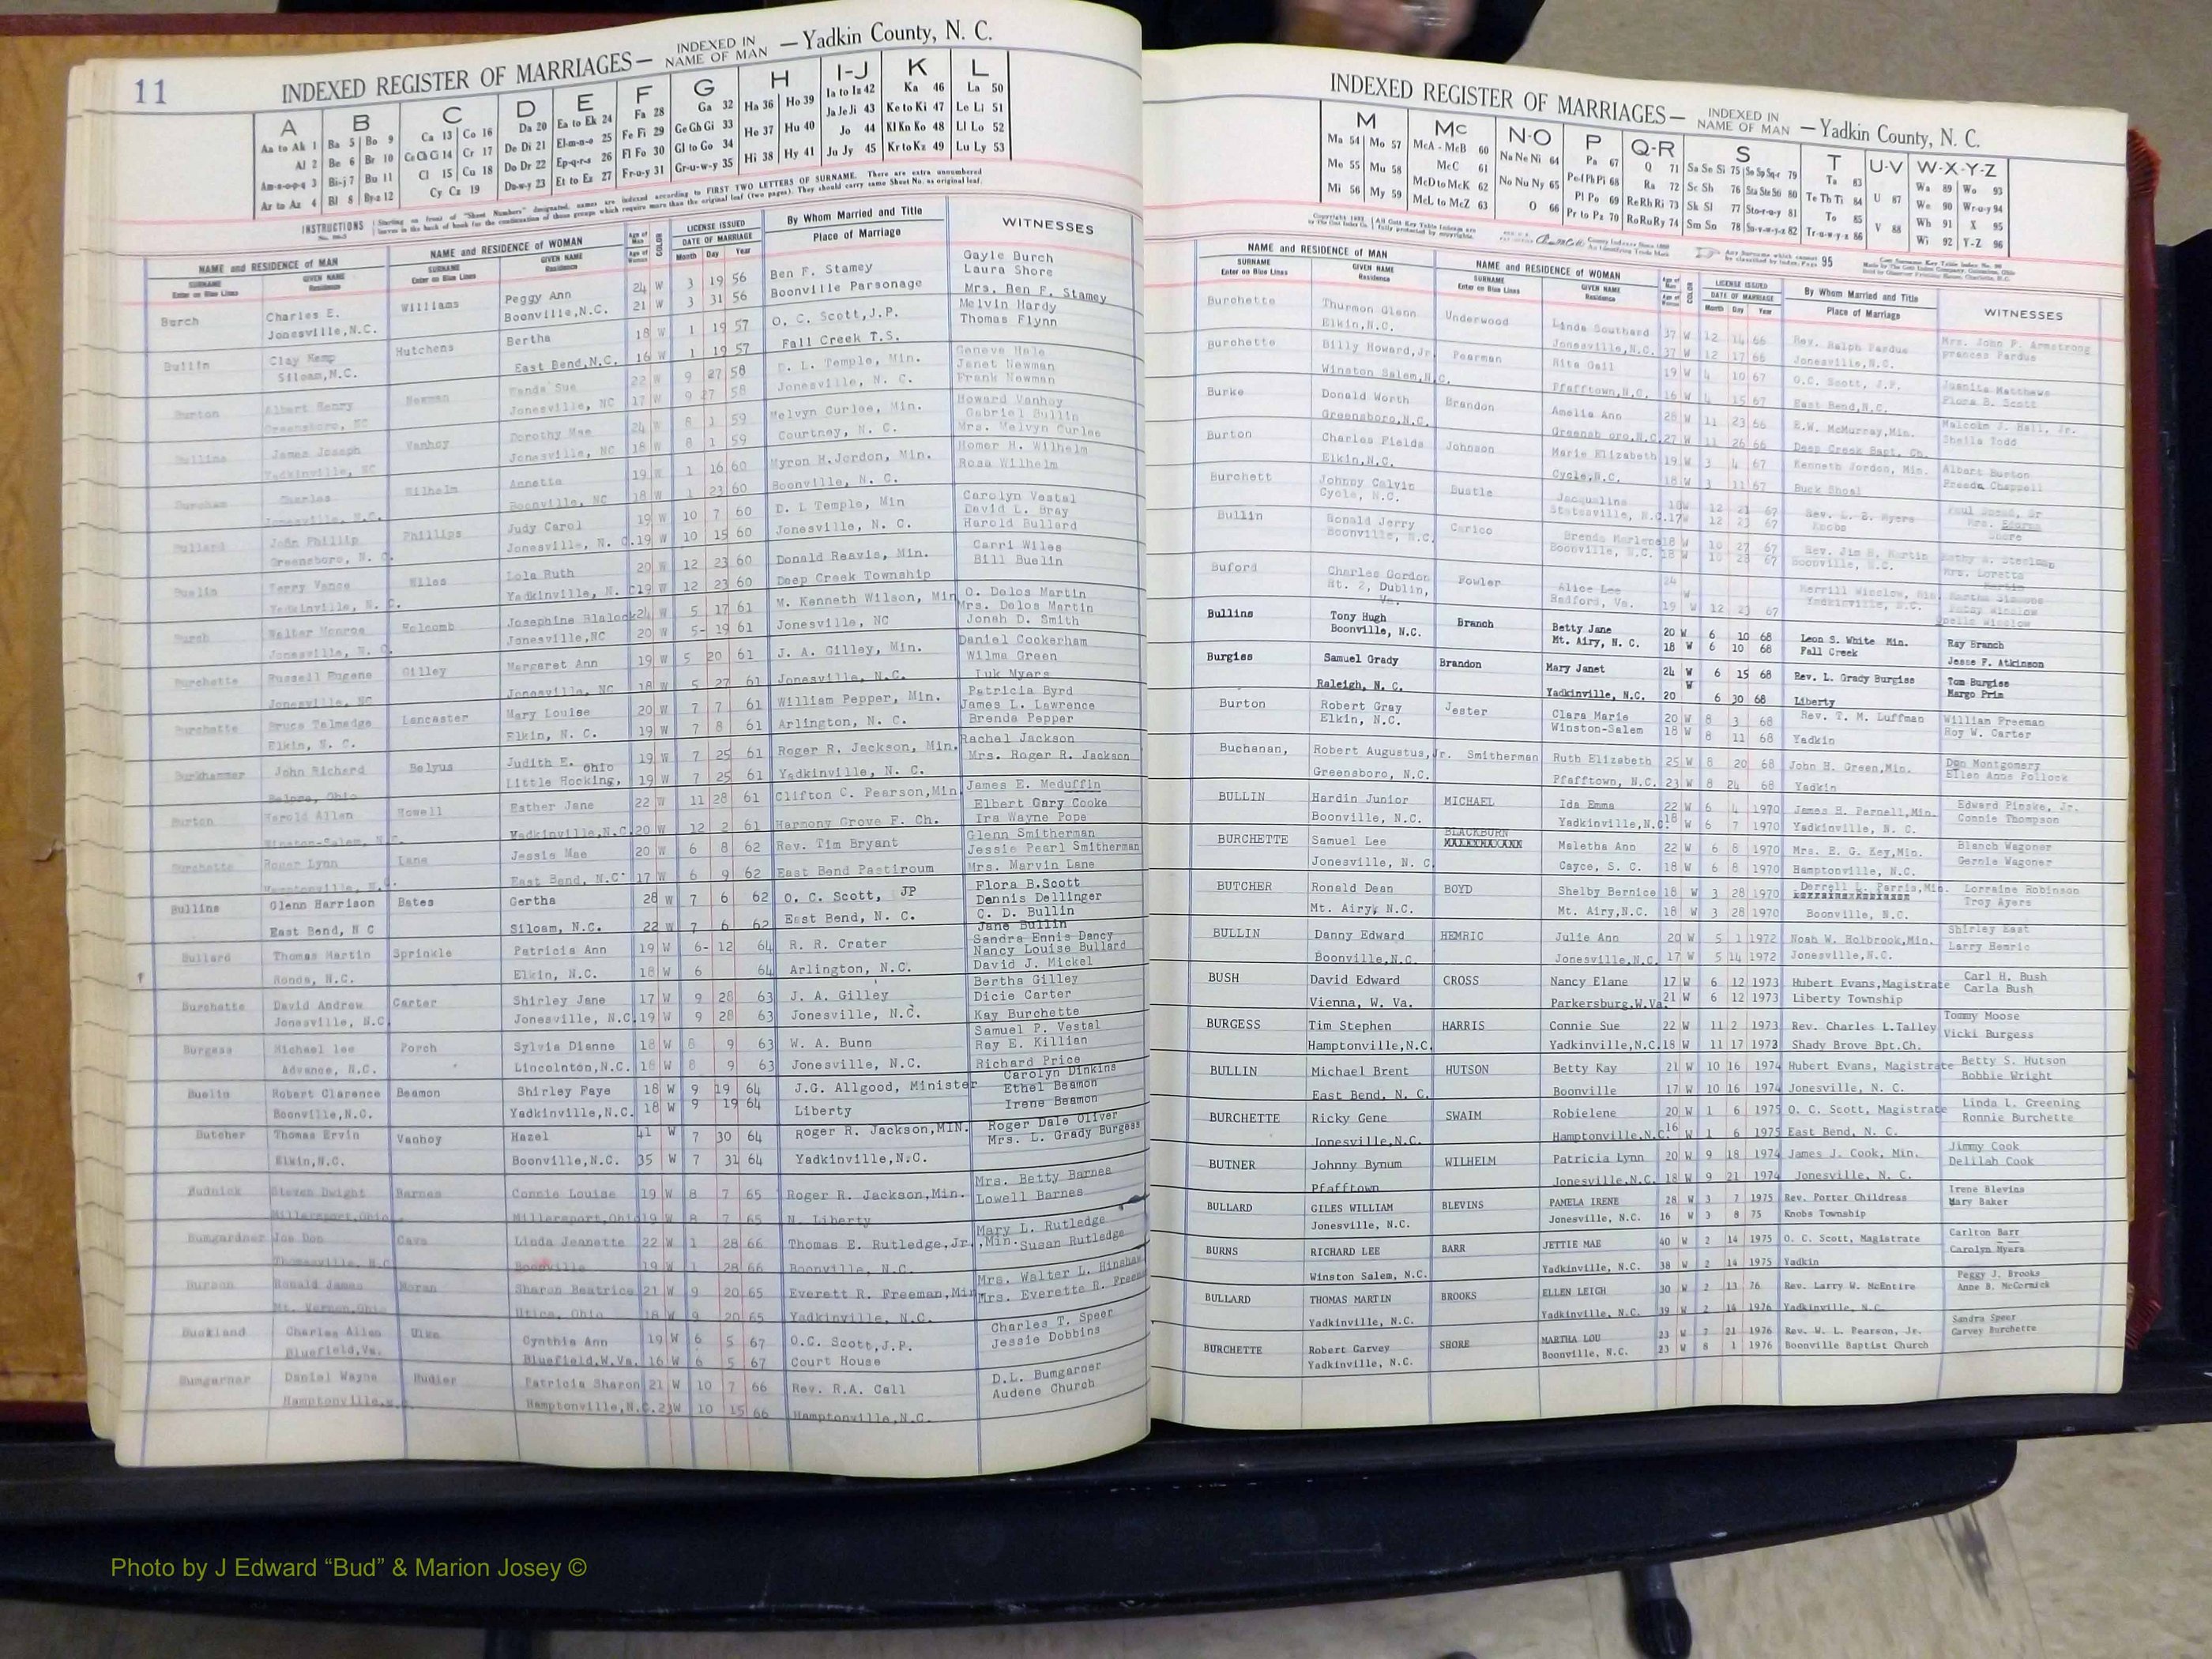 11
INDEXED REGISTER OF MARRIAGES— INDEXED IN NAME OF MAN —Yadkin County, N. C.
A B C D E F G H I-J K L
Aa to Ak 1 Ba 5 Bo 9 Ca 13 Co 16 Da 20 Ea to Ek 24 Fa 28 Ga 32 Ha 36 Ho 39 Ia to Iz 42 Ka 46 La 50
Al 2 Be 6 Br 10 Ce Ch Ci 14 Cr 17 De Di 21 El-m-n-o 25 Fe Fi 29 Ge Gh Gi 33 He 37 Hu 40 Ja Je Ji 43 Ke to Ki 47 Le Li 51
Am-n-o-p-q 3 Bi-j 7 Bu 11 Cl 15 Cu 18 Do Dr 22 Ep-q-r-s 26 Fl Fo 30 Gl to Go 34 Hi 38 Hy 41 Jo 44 Kl Kn Ko 48 Ll Lo 52
Ar to Az 4 Bl 8 By-z 12 Cy Cz 19 Du-w-y 23 Et to Ez 27 Fr-u-y 31 Gr-u-w-y 35 Ju Jy 45 Kr to Kz 49 Lu Ly 53
INSTRUCTIONS
NAME and RESIDENCE of MAN NAME and RESIDENCE of WOMAN COLOR LICENSE ISSUED DATE OF MARRIAGE Month Day Year By Whom Married and Title Place of Marriage WITNESSES
SURNAME Enter on Blue Lines GIVEN NAME Residence SURNAME Enter on Blue Lines GIVEN NAME Residence
Burch Charles E. Williams Peggy Ann 24 W 3 19 56 Ben F. Stamey Gayle Burch
Jonesville,N.C. Boonville,N.C. 21 W 3 31 56 Boonville Parsonage Laura Shore
Mrs. Ben F. Stamey
Bullin Clay Kemp Hutchens Bertha 18 W 1 19 57 O. C. Scott,J.P. Melvin Hardy
Siloam,N.C. East Bend,N.C. 16 W 1 19 57 Fall Creek T.S. Thomas Flynn
Burton Albert Henry Newman Wanda Sue 22 W 9 27 58 D. L. Temple, Min. Geneve Hale
Greensboro, NC Jonesville, NC 17 W 9 27 58 Jonesville, N. C. Janet Newman
Frank Newman
Bullins James Joseph Vanhoy Dorothy Mae 24 W 8 1 59 Melvyn Curlee, Min. Howard Vanhoy
Yadkinville, NC Jonesville, NC 18 W 8 1 59 Courtney, N. C. Gabriel Bullin
Mrs. Melvyn Curlee
Burcham Charles Wilhelm Annette 19 W 1 16 60 Myron H.Jordon, Min. Homer H. Wilhelm
Jonesville, N.C. Boonville, NC 18 W 1 23 60 Boonville, N. C. Rosa Wilhelm
Bullard John Phillip Phillips Judy Carol 19 W 10 7 60 D. L Temple, Min Carolyn Vestal
Greensboro, N. C. Jonesville, N. C.19 W 10 15 60 Jonesville, N. C. David L. Bray
Harold Bullard
Buelin Terry Vance Wiles Lola Ruth 20 W 12 23 60 Donald Reavis, Min. Carri Wiles
Yadkinville, N. C. Yadkinville, N. C19 W 12 23 60 Deep Creek Township Bill Buelin
Burch Walter Monroe Holcomb Josephine Blalock24 W 5 17 61 M. Kenneth Wilson, Min O. Delos Martin
Jonesville, N. C. Jonesville,NC 20 W 5- 19 61 Jonesville, NC Mrs. Delos Martin
Jonah D. Smith
Burchette Russell Eugene Gilley Margaret Ann 19 W 5 20 61 J. A. Gilley, Min. Daniel Cookerham
Jonesville, NC Jonesville, NC 18 W 5 27 61 Jonesville, N.C. Wilma Green
Luk Myers
Burchette Bruce Talmadge Lancaster Mary Louise 20 W 7 7 61 William Pepper, Min. Patricia Byrd
Elkin, N. C. Elkin, N. C. 19 W 7 8 61 Arlington, N. C. James L. Lawrence
Brenda Pepper
Burkhammer John Richard Belyus Judith E. Ohio 19 W 7 25 61 Roger R. Jackson, Min. Rachel Jackson
Belpre, Ohio Little Hocking, 19 W 7 25 61 Yadkinville, N. C. Mrs. Roger R. Jackson
Burton Harold Allen Howell Esther Jane 22 W 11 28 61 Clifton C. Pearson,Min James E. Meduffin
Winston-Salem, N.C. Yadkinville,N.C.20 W 12 2 61 Harmony Grove F. Ch. Elbert Gary Cooke
Ira Wayne Pope
Burchette Roger Lynn Lane Jessie Mae 20 W 6 8 62 Rev. Tim Bryant Glenn Smitherman
Hamptonville, N.C. East Bend, N.C. 17 W 6 9 62 East Bend Pastiroum Jessie Pearl Smitherman
Mrs. Marvin Lane
Bullins Glenn Harrison Bates Gertha 28 W 7 6 62 O. C. Scott, JP Flora B.Scott
East Bend, N C Siloam, N.C. 22 W 7 6 62 East Bend, N. C. Dennis Dellinger
C. D. Bullin
Jane Bullin
Bullard Thomas Martin Sprinkle Patricia Ann 19 W 6- 12 64 R. R. Crater Sandra Ennis Dancy
Ronda, N.C. Elkin, N.C. 18 W 6 64 Arlington, N.C. Nancy Louise Bullard
David J. Mickel
Burchette David Andrew Carter Shirley Jane 17 W 9 28 63 J. A. Gilley Bertha Gilley
Jonesville, N.C Jonesville, N.C.19 W 9 28 63 Jonesville, N.C. Dicie Carter
Kay Burchette
Burgess Michael lee Porch Sylvia Dianne 18 W 8 9 63 W. A. Bunn Samuel P. Vestal
Advance, N.C. Lincolnton,N.C. 18 W 8 9 63 Jonesville, N.C. Ray E. Killian
Richard Price
Buelin Robert Clarence Beamon Shirley Faye 18 W 9 19 64 J.G. Allgood, Minister Carolyn Dinkins
Boonville,N.C. Yadkinville,N.C. 18 W 9 19 64 Liberty Ethel Beamon
Irene Beamon
Butcher Thomas Ervin Vanhoy Hazel 41 W 7 30 64 Roger R. Jackson,MIN. Roger Dale Oliver
Elkin,N.C. Boonville,N.C. 35 W 7 31 64 Yadkinville,N.C. Mrs. L. Grady Burgess
Budnick Steven Dwight Barnes Connie Louise 19 W 8 7 65 Roger R. Jackson,Min. Mrs. Betty Barnes
Millersport,Ohio Millersport,Ohio19 W 8 7 65 N. Liberty Lowell Barnes
Bumgardner Joe Don Cave Linda Jeanette 22 W 1 28 66 Thomas E. Rutledge,Jr.,Min. Mary L. Rutledge
Thomasville, N.C Boonville 19 W 1 28 66 Boonville, N.C. Susan Rutledge
Burson Ronald James Moran Sharon Beatrice 21 W 9 20 65 Everett R. Freeman,Min Mrs. Walter L. Hinshaw
Mt. Vernon,Ohio Utica, Ohio 18 W 9 20 65 Yadkinville, N.C. Mrs. Everette R. Freem
Buckland Charles Allen Cynthia Ann 19 W 6 5 67 O.C. Scott,J.P. Charles T. Speer
Bluefield,Va. Bluefield,W.Va. 16 W 6 5 67 Court House Jessie Dobbins
Bumgarner Daniel Wayne Patricia Sharon 21 W 10 7 66 Rev. R.A. Call D.L. Bumgarner
Hamptonville Hamptonville,N.C.23W 10 15 66 Hamptonville,N.C. Audene Church
INDEXED REGISTER OF MARRIAGES— INDEXED IN NAME OF MAN —Yadkin County, N. C.
M Mc N-O P Q-R S T U-V W-X-Y-Z
Ma 54 Mo 57 McA - McB 60 Na Ne Ni 64 Pa 67 Q 71 Sa Se Si 75 So Sp Sq-r 79 Ta 83 U 87 Wa 89 Wo 93
Me 55 Mu 58 McC 61 No Nu Ny 65 Pe-f Ph Pi 68 Ra 72 Sc Sh 76 Sta Ste Sti 80 Te Th Ti 84 V 88 We 90 Wr-u-y 94
Mi 56 My 59 McD to McK 62 O 66 Pl Po 69 Re Rh Ri 73 Sk Sl 77 Sto-r-u-y 81 To 85 Wh 91 X 95
McL to McZ 63 Pr to Pz 70 Ro Ru Ry 74 Sm Sn 78 Su-v-w-y-z 82 Tr-u-w-y-z 86 Wi 92 Y-Z 96
NAME and RESIDENCE of MAN NAME and RESIDENCE of WOMAN COLOR LICENSE ISSUED DATE OF MARRIAGE Month Day Year By Whom Married and Title Place of Marriage WITNESSES
SURNAME Enter on Blue Lines GIVEN NAME Residence SURNAME Enter on Blue Lines GIVEN NAME Residence
Burchette Thurmon Glenn Underwood Linda Southard 37 W 12 14 66 Rev. Ralph Pardue Mrs. John F. Armstrong
Elkin,N.C. Jonesville,N.C. 37 W 12 17 66 Jonesville,N.C. Frances Pardue
Burchette Billy Howard,Jr. Pearman Rita Gail 19 W 4 10 67 O.C. Scott, J.P. Juanita Matthews
Winston Salem,N.C. Pfafftown,N.C. 16 W 4 15 67 East Bend,N.C. Flora B. Scott
Burke Donald Worth Brandon Amelia Ann 28 W 11 23 66 E.W. McMurray,Min. Malcolm J. Hall, Jr.
Greensboro,N.C. Greensb oro,N.C.27 W 11 26 66 Deep Creek Bapt. Ch. Sheila Todd
Burton Charles Fields Johnson Marie Elizabeth 19 W 3 4 67 Kenneth Jordon, Min. Albert Burton
Elkin,N.C. Cycle,N.C. 18 W 3 11 67 Buck Shoal Freeda Chappell
Burchett Johnny Calvin Bustle Jacqueline 18W 12 21 67 Rev. L. B. Myers
Cycle, N.C. Statesville, N.C.17W 12 23 67 Knobs
Bullin Ronald Jerry Carico Brenda Marlene18 W 10 27 67 Rev. Jim B. Martin Kathy A. Steelman
Boonville, N.C. Boonville, N.C. 18 W 10 28 67 Boonville, N.C. Mrs. Loretta Martin
Buford Charles Gordon Fowler Alice Lee 24 W Merrill Winslow, Min Martha Simmons
Rt. 2, Dublin, Va. Radford, Va. 19 W 12 23 67 Yadkinville, N.C. Patsy Winslow
Bullins Tony Hugh Branch Betty Jane 20 W 6 10 68 Leon S. White Min. Ray Branch
Boonville, N.C. Mt. Airy, N. C. 18 W 6 10 68 Fall Creek Jesse F. Atkinson
Burgiss Samuel Grady Brandon Mary Janet 24 W 6 15 68 Rev. L. Grady Burgiss Tom Burgiss
Raleigh, N. C. Yadkinville, N.C. 20 W 6 30 68 Liberty Margo Prim
Burton Robert Gray Jester Clara Marie 20 W 8 3 68 Rev. T. M. Luffman William Freeman
Elkin, N.C. Winston-Salem 18 W 8 11 68 Yadkin Roy W. Carter
Buchanan, Robert Augustus,Jr. Smitherman Ruth Elizabeth 25 W 8 20 68 John H. Green,Min. Don Montgomery
Greensboro, N.C. Pfafftown, N.C. 23 W 8 24 68 Yadkin Ellen Anne Pollock
BULLIN Hardin Junior MICHAEL Ida Emma 22 W 6 4 1970 James H. Pernell,Min. Edward Pinske, Jr.
Boonville, N.C. Yadkinville,N.C.18 W 6 7 1970 Yadkinville, N. C. Connie Thompson
BURCHETTE Samuel Lee BLACKBURN Maletha Ann 22 W 6 8 1970 Mrs. E. G. Key,Min. Blanch Wagoner
Jonesville, N. C. Cayce, S. C. 18 W 6 8 1970 Hamptonville, N.C. Gernie Wagoner
BUTCHER Ronald Dean BOYD Shelby Bernice 18 W 3 28 1970 Derrell L. Parris,Min. Lorraine Robinson
Mt. Airy, N.C. Mt. Airy,N.C. 18 W 3 28 1970 Boonville, N.C. Troy Ayers
BULLIN Danny Edward HEMRIC Julie Ann 20 W 5 1 1972 Noah W. Holbrook,Min. Shirley East
Boonville,N.C. Jonesville,N.C. 17 W 5 14 1972 Jonesville,N.C. Larry Hemric
BUSH David Edward CROSS Nancy Elane 17 W 6 12 1973 Hubert Evans,Magistrate Carl H. Bush
Vienna, W. Va. Parkersburg,W.Va.21 W 6 12 1973 Liberty Township Carla Bush
BURGESS Tim Stephen HARRIS Connie Sue 22 W 11 2 1973 Rev. Charles L.Talley Tommy Moose
Hamptonville,N.C. Yadkinville,N.C.18 W 11 17 1973 Shady Brove Bpt.Ch. Vicki Burgess
BULLIN Michael Brent HUTSON Betty Kay 21 W 10 16 1974 Hubert Evans, Magistrate Betty S. Hutson
East Bend, N. C. Boonville 17 W 10 16 1974 Jonesville, N. C. Bobbie Wright
BURCHETTE Ricky Gene SWAIM Robielene 20 W 1 6 1975 O. C. Scott, Magistrate Linda L. Greening
Jonesville,N.C. Hamptonville,N.C.16 W 1 6 1975 East Bend, N. C. Ronnie Burchette
BUTNER Johnny Bynum WILHELM Patricia Lynn 20 W 9 18 1974 James J. Cook, Min. Jimmy Cook
Pfafftown Jonesville,N.C. 18 W 9 21 1974 Jonesville, N. C. Delilah Cook
BULLARD GILES WILLIAM BLEVINS PAMELA IRENE 28 W 3 7 1975 Rev. Porter Childress Irene Blevins
Jonesville, N.C. Jonesville, N.C. 16 W 3 8 75 Knobs Township Mary Baker
BURNS RICHARD LEE BARR JETTIE MAE 40 W 2 14 1975 O. C. Scott, Magistrate Carlton Barr
Winston Salem, N.C. Yadkinville, N.C. 38 W 2 14 1975 Yadkin Carolyn Myers
BULLARD THOMAS MARTIN BROOKS ELLEN LEIGH 30 W 2 13 76 Rev. Larry W. McEntire Peggy J. Brooks
Yadkinville, N.C. Yadkinville, N.C. 19 W 2 14 1976 Yadkinville, N.C. Anne B. McCormick
BURCHETTE Robert Garvey SHORE MARTHA LOU 23 W 7 21 1976 Rev. W. L. Pearson, Jr. Sandra Speer
Yadkinville, N.C. Boonville, N.C. 23 W 8 1 1976 Boonville Baptist Church Garvey Burchette
Photo by J Edward “Bud” & Marion Josey ©